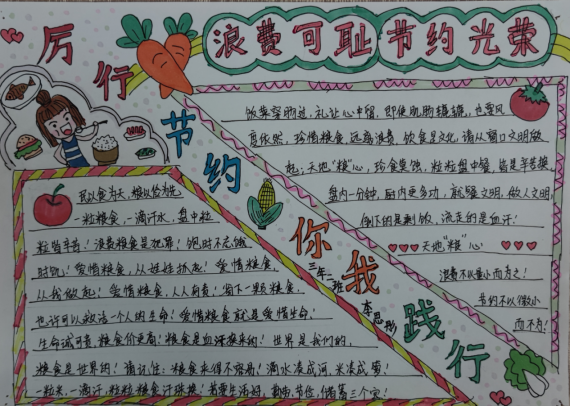 浪费可耻 节约光荣
厉行节约 你我践行
三年二班
饭菜穿肠过,礼让心中留,即使肌肠辘辘,也要风
度依然,珍惜粮食,远离浪费,饮食是文化,请从窗口文明做
起,天地"粮"心,珍食莫蚀,粒粒盘中餐,皆是辛苦换,
盘内一分钟,厨内更多功,就餐文明,做人文明,
倒下的是剩饭,流走的是血汗!
天地"粮"心
浪费不以量小而为之!
节约不以微小
而不为!
民以食为天,粮以俭为先
一粒粮食,一滴汗水,盘中粒
粒皆辛苦!浪费粮食是犯罪!饱时不忘饿
时饥!爱惜粮食,从娃娃抓起!爱惜粮食,
从我做起!爱惜粮食,人人有责!省下一颗粮食,
也许可以救活一个人的生命!爱惜粮食就是爱惜生命!
生命诚可贵,粮食价更高!粮食是血汗换来的!世界是我们的,
粮食是世界的!请记住:粮食来得不容易!滴水凑成河,米凑成箩!
一粒米,一滴汗,粒粒粮食汗珠换!若要生活好,勤劳、节俭、储蓄三个宝!